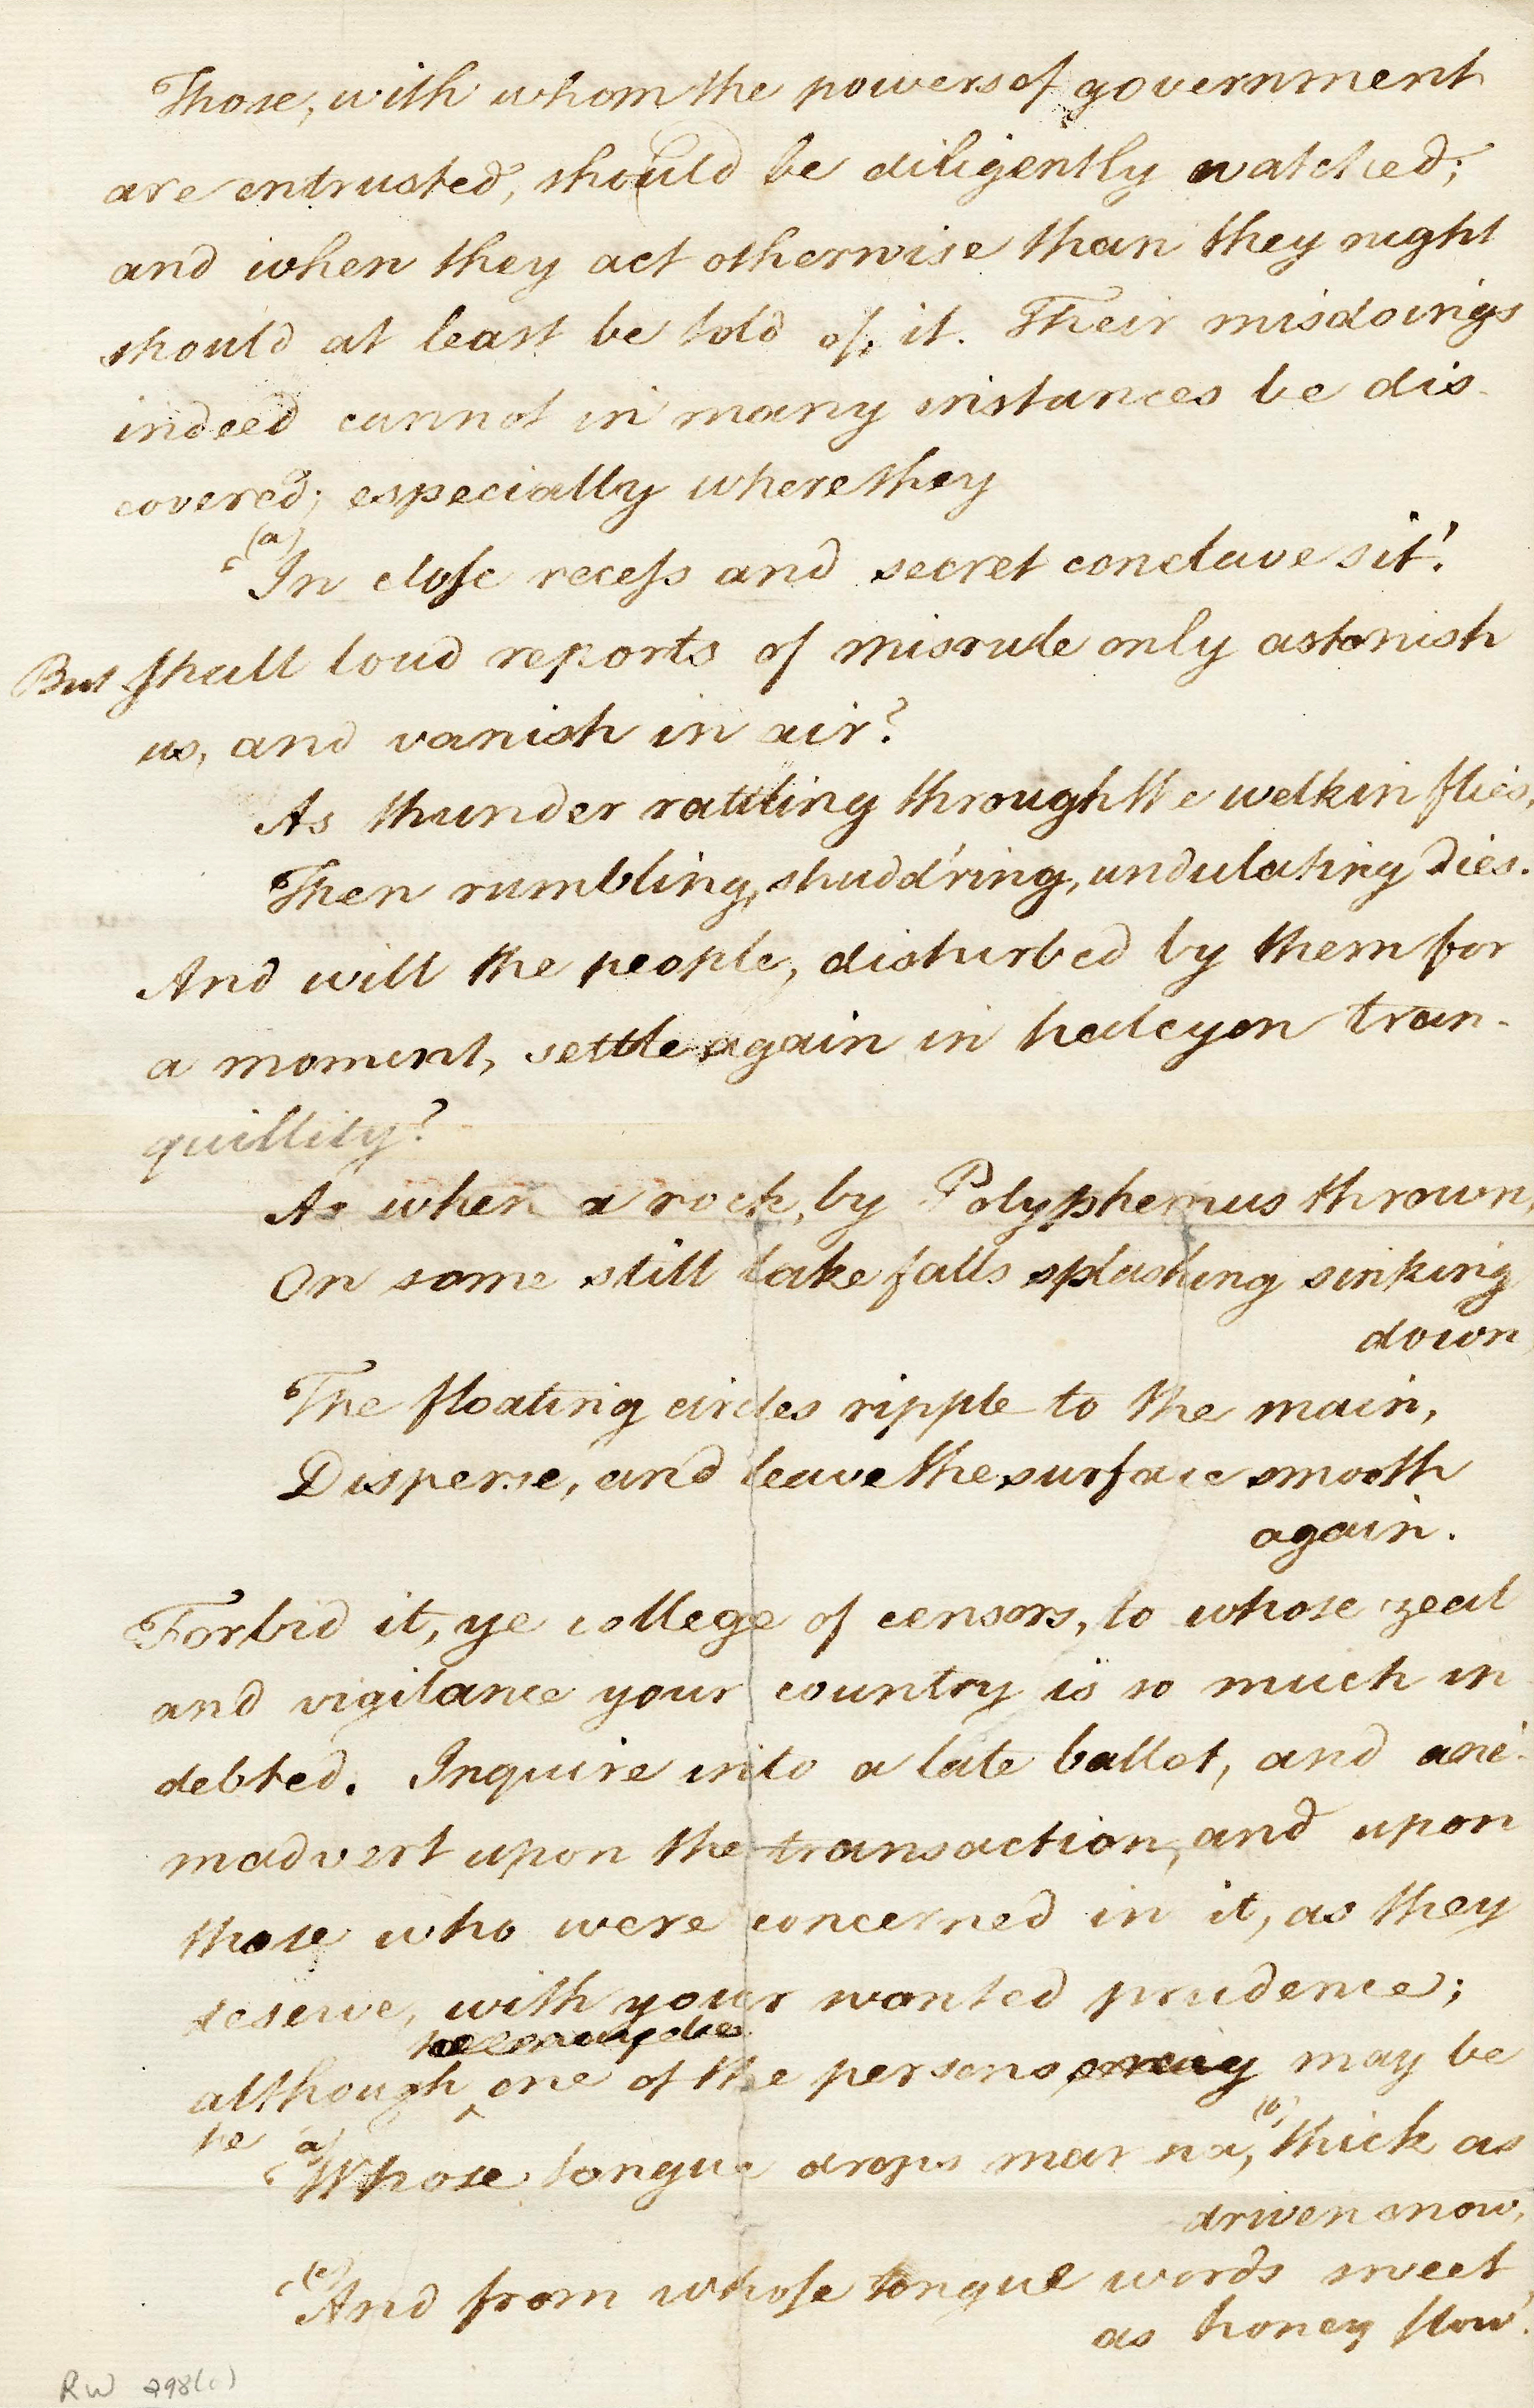 Those, with whom the powers of government
are entrusted, should be diligently watched;
and when they act otherwise than they might
should at least be told of it. Their misdoings
indeed cannot in many instances be dis-
covered; especially where they
(a)
'In close recess and secret conclave sit'.
But shall loud reports of misrule only astonish
us, and vanish in air?
As thunder rattling through the welkin flies,
Then rumbling, shudd'ring, undulating dies.
And will the people, disturbed by them for
a moment, settle again in halcyon tran-
quillity?
As when a rock, by Polyphemus thrown,
On some still lake falls splashing sinking
down
The floating circles ripple to the main,
Disperse, and leave the surface smooth
again.
Forbid it, ye college of censors, to whose zeal
and vigilance your country is so much in
debted. Inquire into a late ballot, and ani-
madvert upon the transaction, and upon
those who were concerned in it, as they
deserve, with your wonted prudence;
although one of the persons may be
he
(a) (b)
'Whose tongue drops manna, thick as
driven snow,
(c)
'And from whose tongue words sweet
as honey flow'.
RW 298(c)